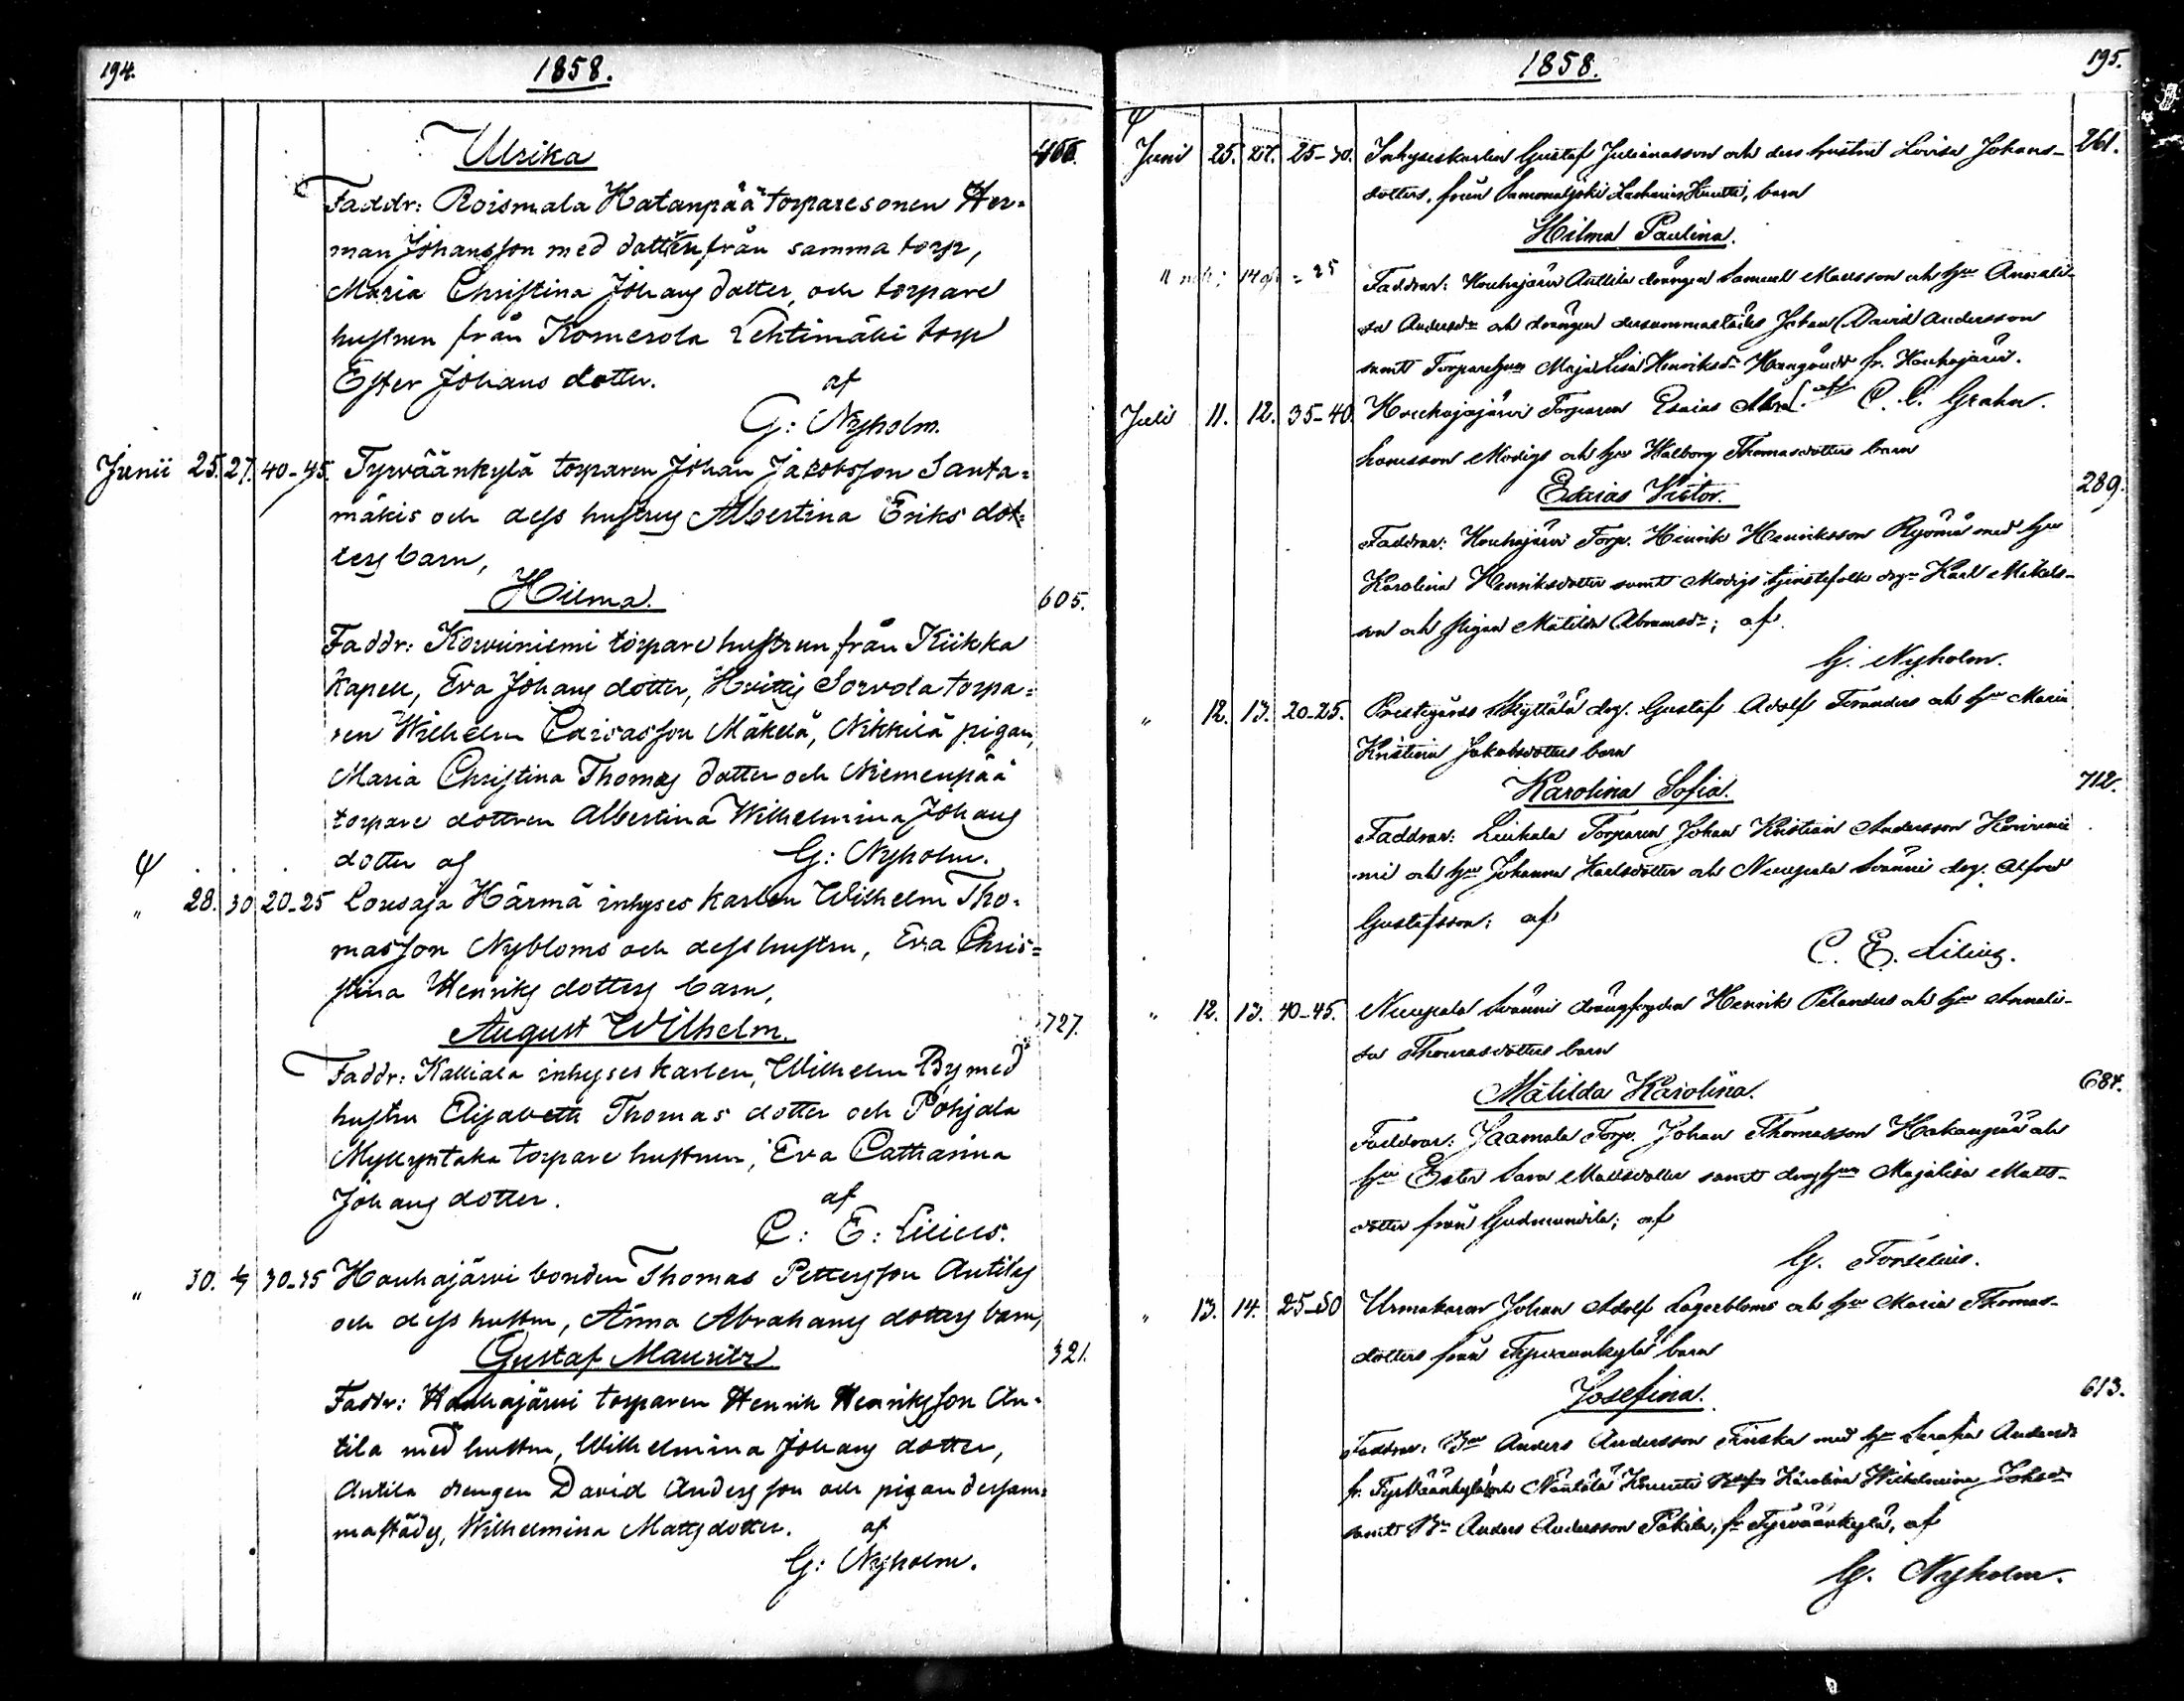 194.
1858.
Ulrika
466.
Faddr: Roismala Hatanpää torparesonen Her-
man Johansson med dottren från samma torp,
Maria Christina Johans dotter, och torpare
hustrun från Komerola Lehtimäki torp
Ester Johans dotter. af
G: Nyholm.
Junii 25. 27. 40-45. Tyrväänkylä torparen Johan Jakobsson Santa-
mäkis och dess hustrus Albertina Eriks dot-
ters barn,
Hilma.
605.
Faddr: Korviniemi torpare hustrun från Kiikka
Kapell, Eva Johans dotter, Huittis Sorvola torpa-
ren Wilhelm Esaiasson Mäkelä, Nikkilä pigan,
Maria Christina Thomas dotter och Niemenpää
torpare dottren Albertina Wilhelmina Johans
dotter af G: Nyholm.
" 28. 30 20-25 Lousaja Härmä inhyses karlen Wilhelm Tho-
masson Nybloms och dess hustru, Eva Chris-
stina Henriks dotters barn,
August Wilhelm.
727.
Faddr: Kalliala inhyses karlen, Wilhelm By med
hustru Elisabeth Thomas dotter och Pohjala
Myllyntaka torpare hustrun, Eva Catharina
Johans dotter. af
C: E: Lilius.
" 30. 1/7 30-35 Houhajärvi bonden Thomas Pettersson Antilas
och dess hustru, Anna Abrahams dotters barn,
Gustaf Mauritz
321.
Faddr: Houhajärvi torparen Henrik Henriksson An-
tila med hustru, Wilhelmina Johans dotter,
Antila drengen David Andersson och pigan dersam-
mastädes, Wilhelmina Matts dotter. af
G: Nyholm.
1858.
195.
Juni 25. 27. 25-30. Inhyseskarlen Gustaf Julianasson och dess hustru Lovisa Johans-
261.
dotters, från Sammaljoki Zacharias Knutti, barn
Hilma Paulina.
Faddrar: Houhajärvi Anttila drängen Samuel Mattsson och hru Annali-
sa Andersdr och drängen dersammastädes Johan David Andersson
samt Torparehru Maja Lisa Henriksdr fr. Houhajärvi.
af C. E. Grahn.
Juli 11. 12. 35-40. Houhajajärvi Torparen Esaias Abra-
hamsson Modigs och hru Walborg Thomasdotters barn
Esaias Victor.
289.
Faddrar: Houhajärvi Torp. Henrik Henriksson Ryömä med hru
Karolina Henriksdotter samt Modigs tjenstefolk drg. Karl Mikels-
son och pigan Matilda Abramsdr; af
G. Nyholm.
" 12. 13. 20-25. Prestegårds Kyttälä drg. Gustaf Adolf Teranders och hru Maria
Kristina Jakobsdotters barn
Karolina Sofia.
712.
Faddrar: Liuhala Torparen Johan Kristian Andersson Korvenie
mi och hru Johanna Karlsdotter och Nuupala Svänni drg. Alfred
Gustafsson; af
C. E. Lilius.
" 12. 13. 40-45. Nuupala Svänni drängfogden Henrik Pelanders och hru Annali-
sa Thomasdotters barn
Matilda Karolina.
684.
Faddrar: Jaamala Torp. Johan Thomasson Hakanpää och
hru Ester Sara Mattsdotter samt drghru Majalisa Matts-
dotter från Gudmundila; af
G. Forselius.
" 13. 14. 25-30 Urmakaren Johan Adolf Lagerbloms och hru Maria Thomas-
dotters från Tyrväänkylä barn
Josefina.
613.
Faddrar: Bn Anders Andersson Finska med hru Serafia Andersdr
fr. Tyrväänkylä och Näntälä Karolina Wilhelmina Johsdr
samt Bn Anders Andersson Pakila, fr. Tyrväänkylä, af
G. Nyholm.